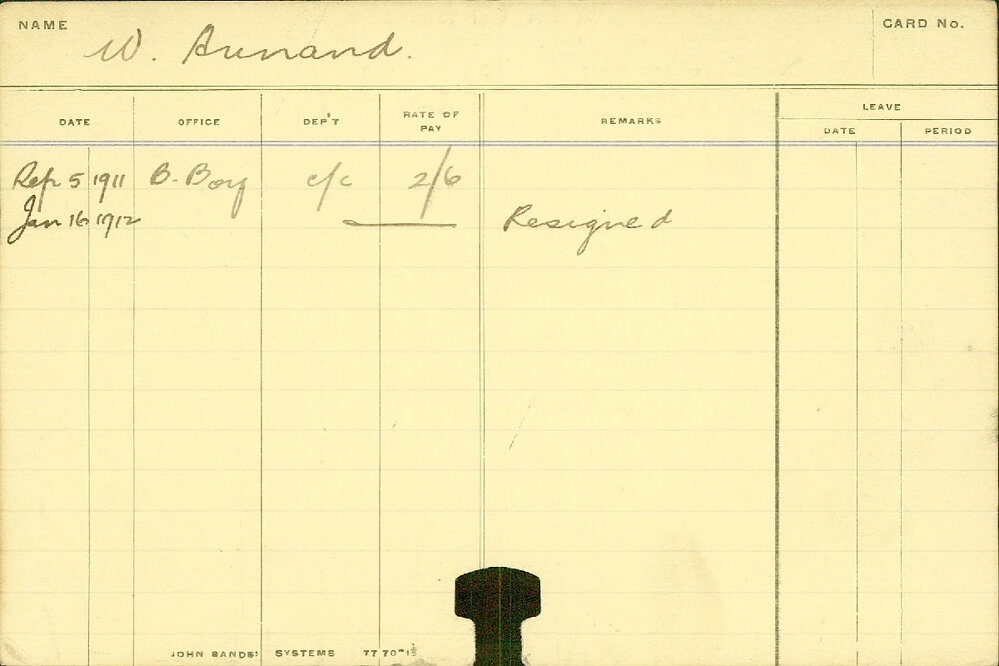 NAME
W. Brunand.
CARD No.
DATE OFFICE DEP'T RATE OF PAY REMARKS LEAVE
DATE PERIOD
5 1911 B. Boy c/c 2/6
Jan 16 1912 Resigned
JOHN SANDS' SYSTEMS 77 70